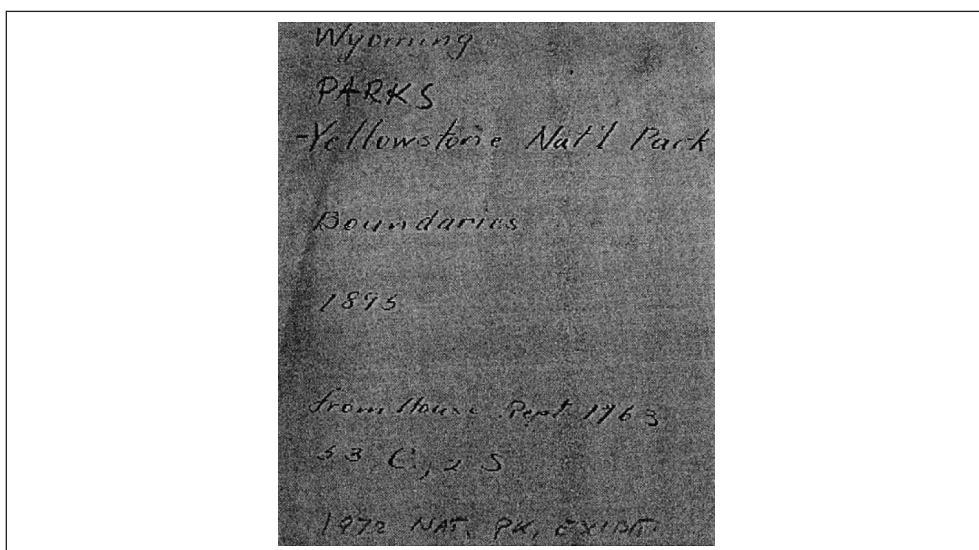 Wyoming
PARKS
-Yellowstone Nat'l Park
Boundaries
1895
from House Rept. 1763
53 C, 2 S
1972 NAT. PK. EXIBIT.